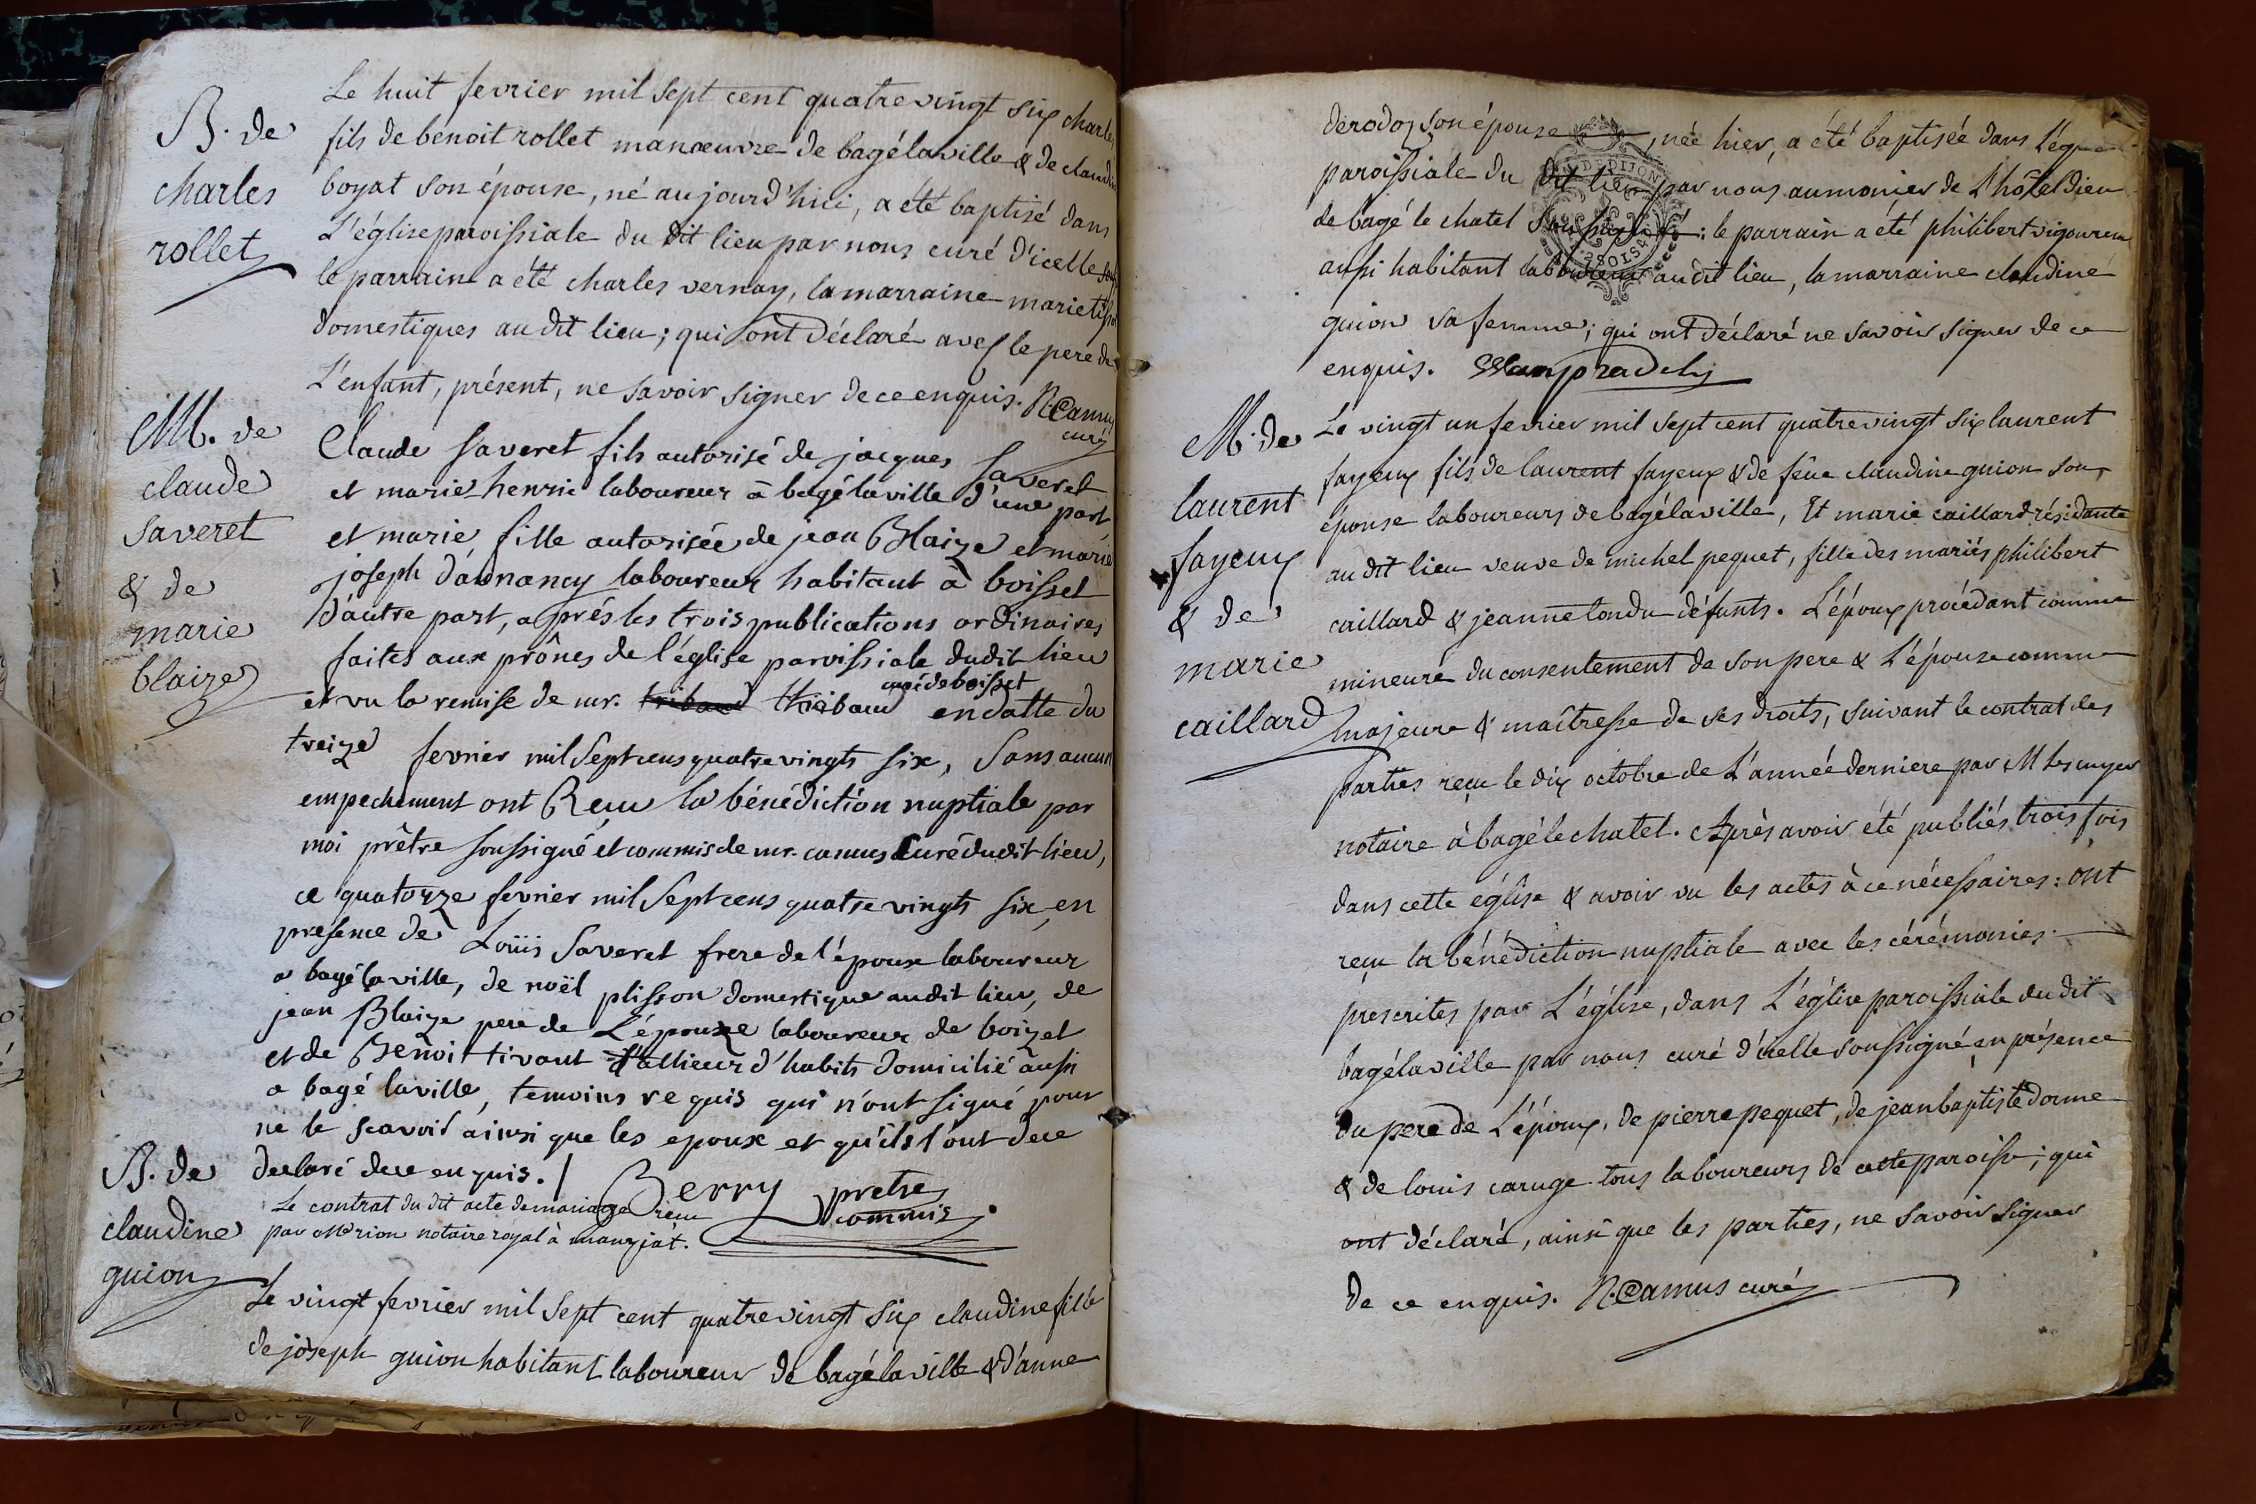 B. de
charles
rollet
Le huit fevrier mil sept cent quatre vingt six charles
fils de benoit rollet manœuvre de bagélaville & de claudine
boyat son épouse, né aujourd'hui, a été baptisé dans
L'église paroissiale du dit lieu par nous curé d'icelle
le parrain a été charles vernay, la marraine marie
domestiques au dit lieu; qui ont déclaré avec le pere de
L'enfant, présent, ne savoir signer de ce enquis. N. Camus
curé
M. de
claude
saveret
& de
marie
blaize
Claude saveret fils autorisé de jacques saveret
et marie henrie laboureur à bagélaville d'une part
et marie fille autorisée de jean Blaize et marie
joseph d'annancy laboureur habitant à boissel
d'autre part, aprés les trois publications ordinaires
faites aux prônes de l'église paroissiale dudit lieu
et vu la remise de mr. tribaud thibaud curé de boisset en datte du
treize fevrier mil sept cens quatre vingts six, sans aucun
empechement ont Reçu la bénédiction nuptiale par
moi prêtre soussigné et commis de mr. camus Curé dudit lieu,
ce quatorze fevrier mil sept cens quatre vingts six, en
presence de Loüis saveret frere de l'époux laboureur
a bagélaville, de noël plisson domestique audit lieu, de
jean Blaize pere de L'épouze laboureur de boizet
et de Benoit tivant tallieur d'habits domicilié aussi
a bagé laville, temoins requis qui n'ont signé pour
ne le scavoir ainsi que les epoux et qu'ils l'ont dece
declaré dece enquis. / Berry pretre
commis.
Le contrat du dit acte de mariage reçu
par merion notaire royal à manziat.
B. de
claudine
guion
Le vingt fevrier mil sept cent quatre vingt six claudine fille
de joseph guion habitant laboureur de bagélaville & d'anne
derodoz son épouse, née hier, a été baptisée dans L'église
paroissiale du dit lieu par nous aumonier de L'hôteldieu
de bagé le chatel soussigné: le parrain a été philibert vigoureux
aussi habitant laboureur audit lieu, la marraine claudine
guion sa femme; qui ont déclaré ne savoir signer de ce
enquis.
M. de
laurent
fayeux
& de
marie
caillard
Le vingt un fevrier mil sept cent quatre vingt six laurent
fayeux fils de laurent fayeux & de feue claudine guion son
épouse laboureurs de bagélaville, Et marie caillard résidante
au dit lieu veuve de michel pequet, fille des mariés philibert
caillard & jeanne tondu défunts. L'époux procédant comme
mineure du consentement de son pere & L'épouse comme
majeure & maîtresse de ses droits, suivant le contrat des
parties reçu le dix octobre de L'année derniere par M Lescuyer
notaire à bagé le chatel. Après avoir été publiés trois fois
dans cette église & avoir vu les actes à ce nécessaires: ont
reçu la bénédiction nuptiale avec les cérémonies
prescrites par L'église, dans L'église paroissiale du dit
bagélaville par nous curé d'icelle soussigné en présence
du pere de L'époux, de pierre pequet, de jean baptiste dorme
& de louis caruge tous laboureurs de cette paroisse; qui
ont déclaré, ainsi que les parties, ne savoir signer
de ce enquis. N. Camus curé